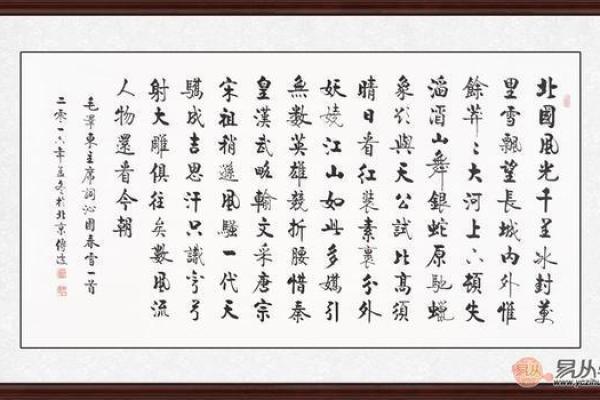 北國風光千里冰封萬
里雪飄望長城内外惟
餘莽〻大河上下頓失
滔滔山舞銀蛇原馳蠟
象欲與天公試比高須
晴日看红裝素裹分外
妖嬈江山如此多嬌引
無數英雄競折腰惜秦
皇漢武略輸文采唐宗
宋祖稍遜風騷一代天
驕成吉思汗只識彎弓
射大雕俱往矣數風流
人物還看今朝
毛澤東主席詞沁園春雪一首
二零一六年孟冬於北京傅
易从
www.yczihua